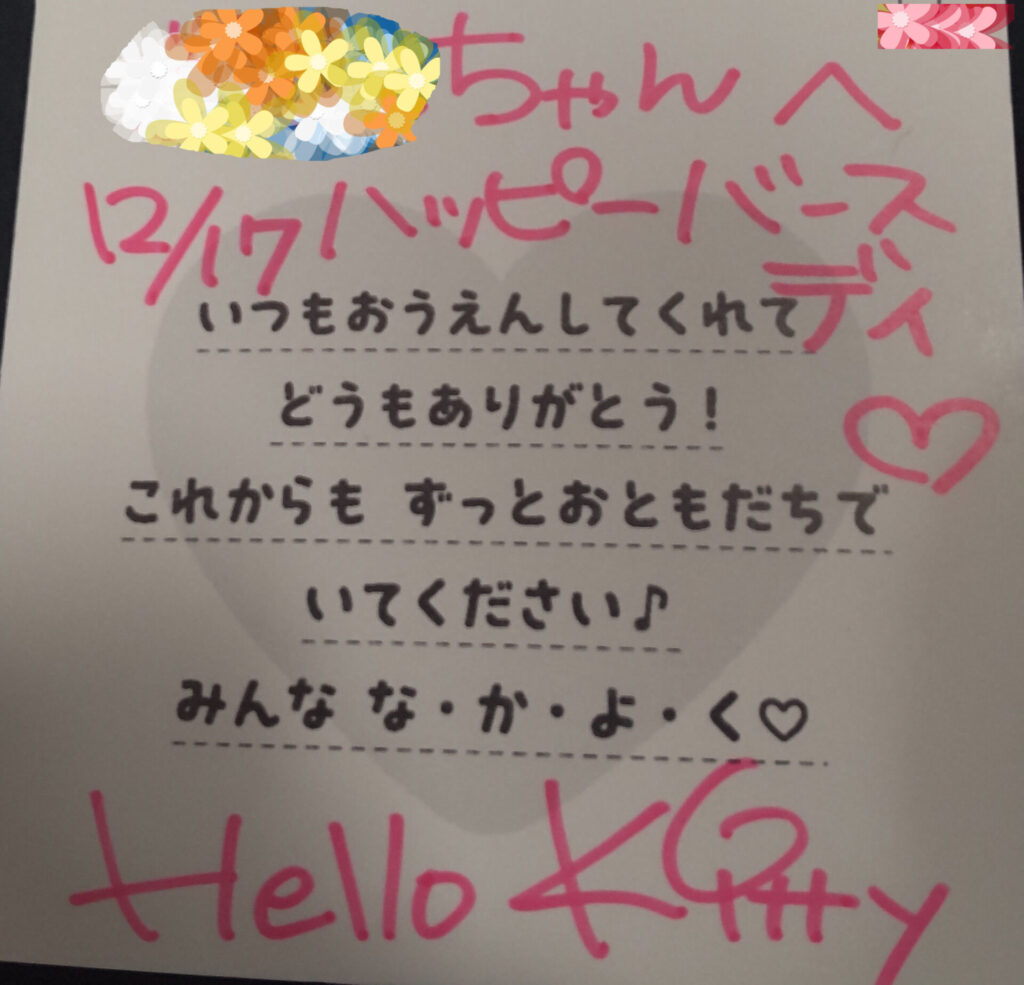 ちゃんへ
12/17 ハッピーバースディ♡
いつもおうえんしてくれて
どうもありがとう！
これからも ずっとおともだちで
いてください♪
みんな な・か・よ・く♡
Hello Kitty